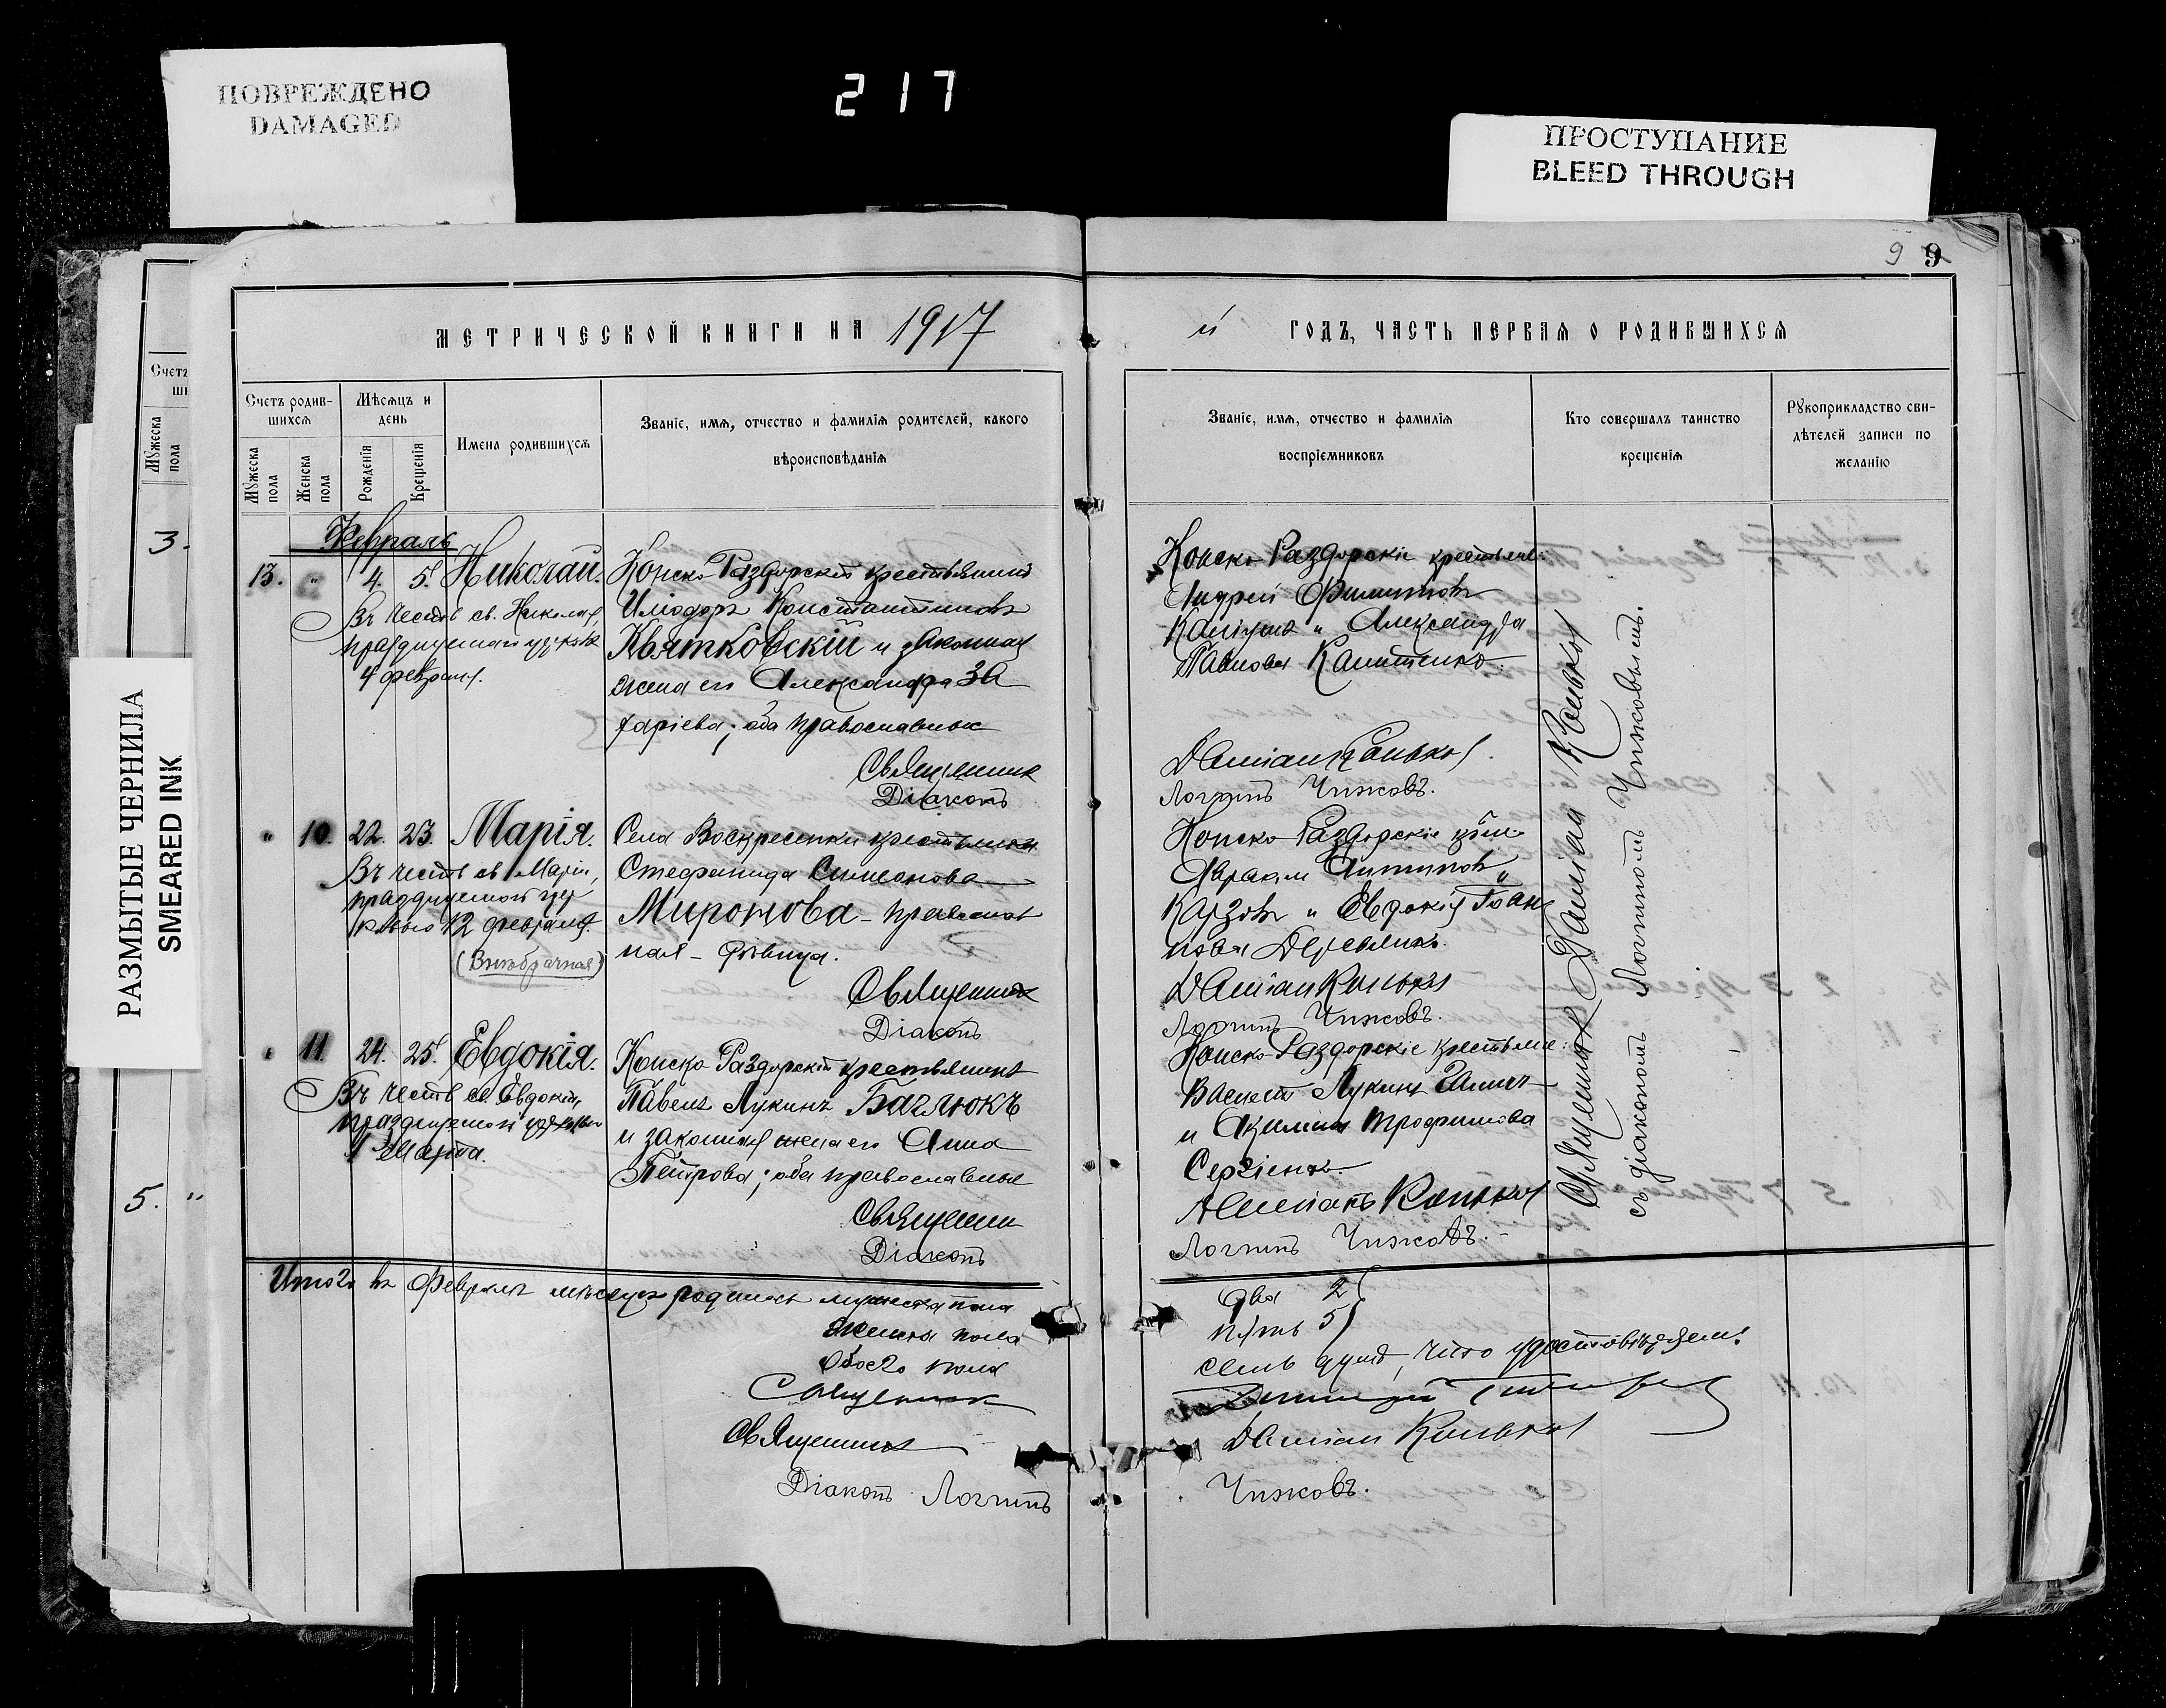 ПОВРЕЖДЕНО
DAMAGED
217
ПРОСТУПАНИЕ
BLEED THROUGH
РАЗМЫТЫЕ ЧЕРНИЛА
SMEARED INK
9 9
МЕТРИЧЕСКОЙ КНИГИ НА 1917
й ГОДЪ, ЧАСТЬ ПЕРВАЯ О РОДИВШИХСЯ
Счетъ родив-
шихся
Мужеска пола
Женска пола
Мѣсяцъ и день
Рожденія
Крещенія
Имена родившихся
Званіе, имя, отчество и фамилія родителей, какого
вѣроисповѣданія
Званіе, имя, отчество и фамилія
воспріемниковъ
Кто совершалъ таинство
крещенія
Рукоприкладство сви-
дѣтелей записи по
желанію
Счетъ
ши
Мужеска пола
3.
5. "
Февраль
13. " 4. 5. Николай.
Въ честь св. Николая,
празднуемаго церковью
4 февраля.
Конско-Раздорскій крестьянинъ
Иліодоръ Константиновъ
Квятковскій и законная
жена его Александра За
харіева; оба православные
Священникъ
Діаконъ
Конско-Раздорскіе крестьяне:
Андрей Филиповъ
и Александра
Павлова
Даміан Коньков
Логгинъ Чижовъ.
" 10. 22. 23. Марія.
Въ честь св. Маріи,
празднуемой цер
ковью 12 февраля.
(Внебрачная)
Села Воскресенки крестьянка
Стефанида Симеонова
Миронова - православ
ная - дѣвица.
Священникъ
Діаконъ
Конско-Раздорскіе
Антиповъ
и Евдокія Іоан
нова
Даміан Коньков
Логгинъ Чижовъ.
" 11. 24. 25. Евдокія.
Въ честь св. Евдокіи,
празднуемой церковью
1 марта.
Конско-Раздорскій крестьянинъ
Павелъ Лукинъ Баглюкъ
и законная жена его Анна
Петрова; оба православные
Священникъ
Діаконъ
Конско-Раздорскіе крестьяне:
Лукинъ
и Акилина Трофимова
Сергіенко.
Коньков
Логгинъ Чижовъ.
Священникъ Даміан Коньков
съ діакономъ Логгиномъ Чижовымъ.
Итого въ Февралѣ мѣсяцѣ родилось мужеска пола
два 2
женска пола
пять 5
обоего пола
семь душъ, что удостовѣряем:
Священник
Священникъ
Даміан Коньков
Діаконъ Логгинъ
Чижовъ.